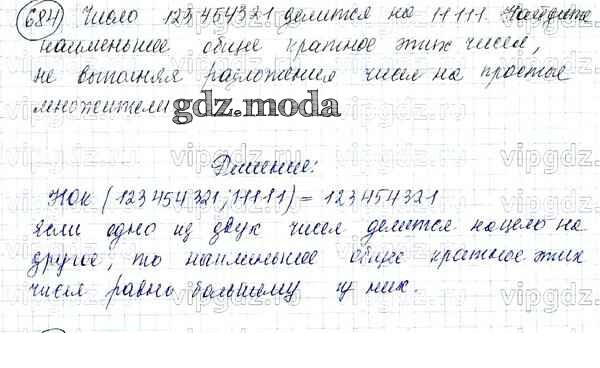 684) Число 123454321 делится на 11111. Найдите
наименьшее общее кратное этих чисел,
не выполняя разложения чисел на простые
множители
gdz.moda
Решение:
НОК (123454321; 11111) = 123454321
если одно из двух чисел делится нацело на
другое, то наименьшее общее кратное этих
чисел равно большему из них.